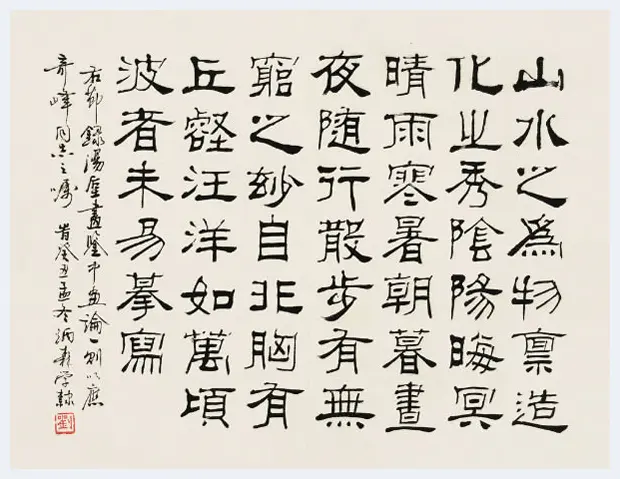 山水之為物稟造
化之秀陰陽晦冥
晴雨寒暑朝暮晝
夜隨行散步有無
窮之妙自非胸有
丘壑汪洋如萬頃
波者未易摹寫
右節錄湯垕畫鑒中画論一則以應
奇峰同志之嘱 旹癸丑孟冬炳森学隸
劉